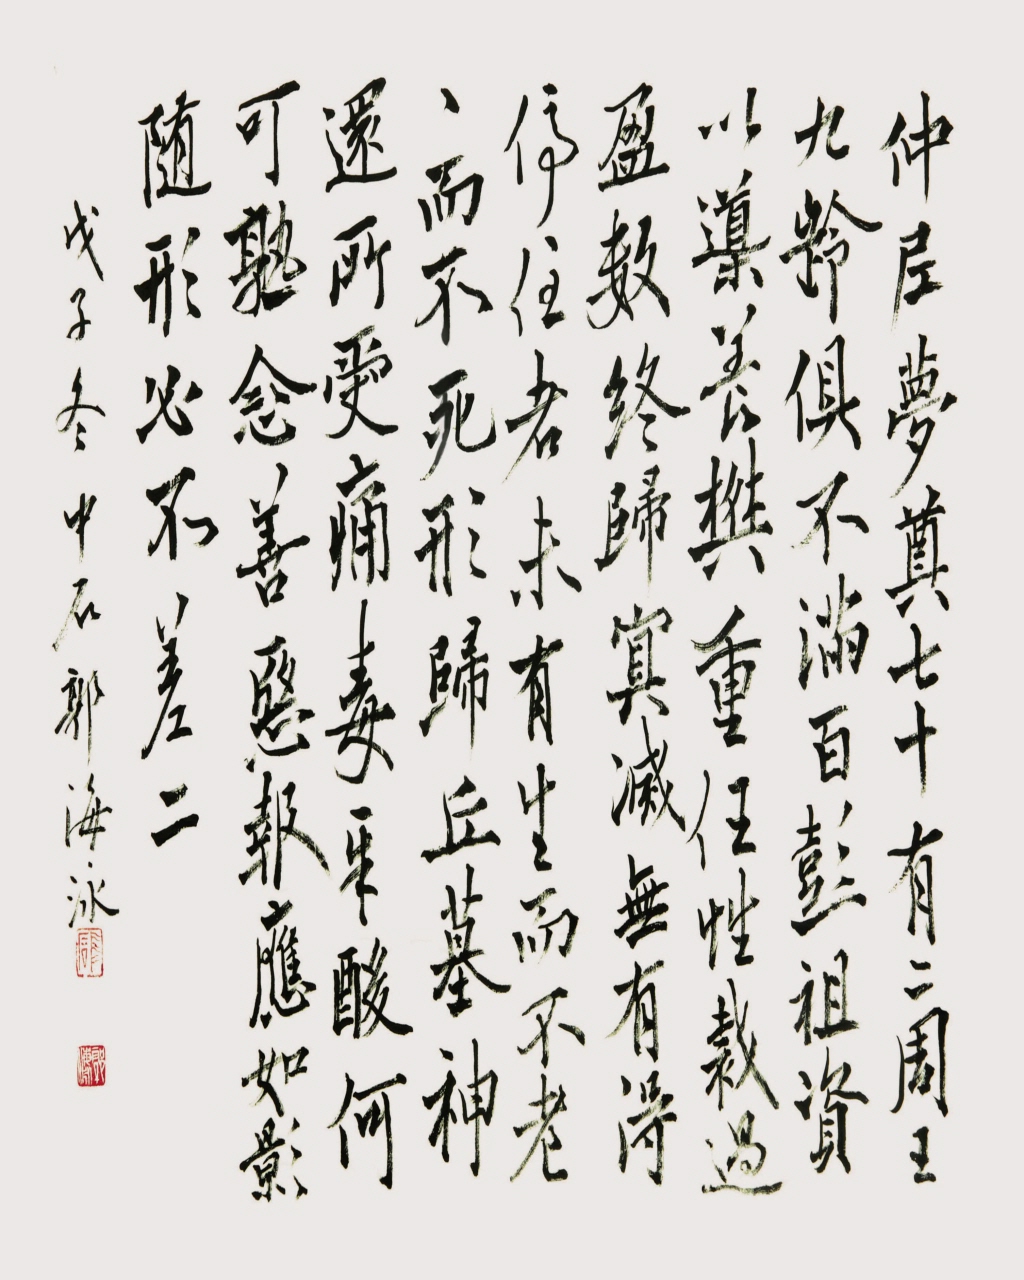 仲尼夢奠七十有二周王
九齡俱不滿百彭祖資
以導養樊重任性裁過
盈數終歸冥滅無有得
停住者未有生而不老
、而不死形歸丘墓神
還所受痛毒辛酸何
可熟念善惡報應如影
随形必不差二
戊子冬中石郭海泳